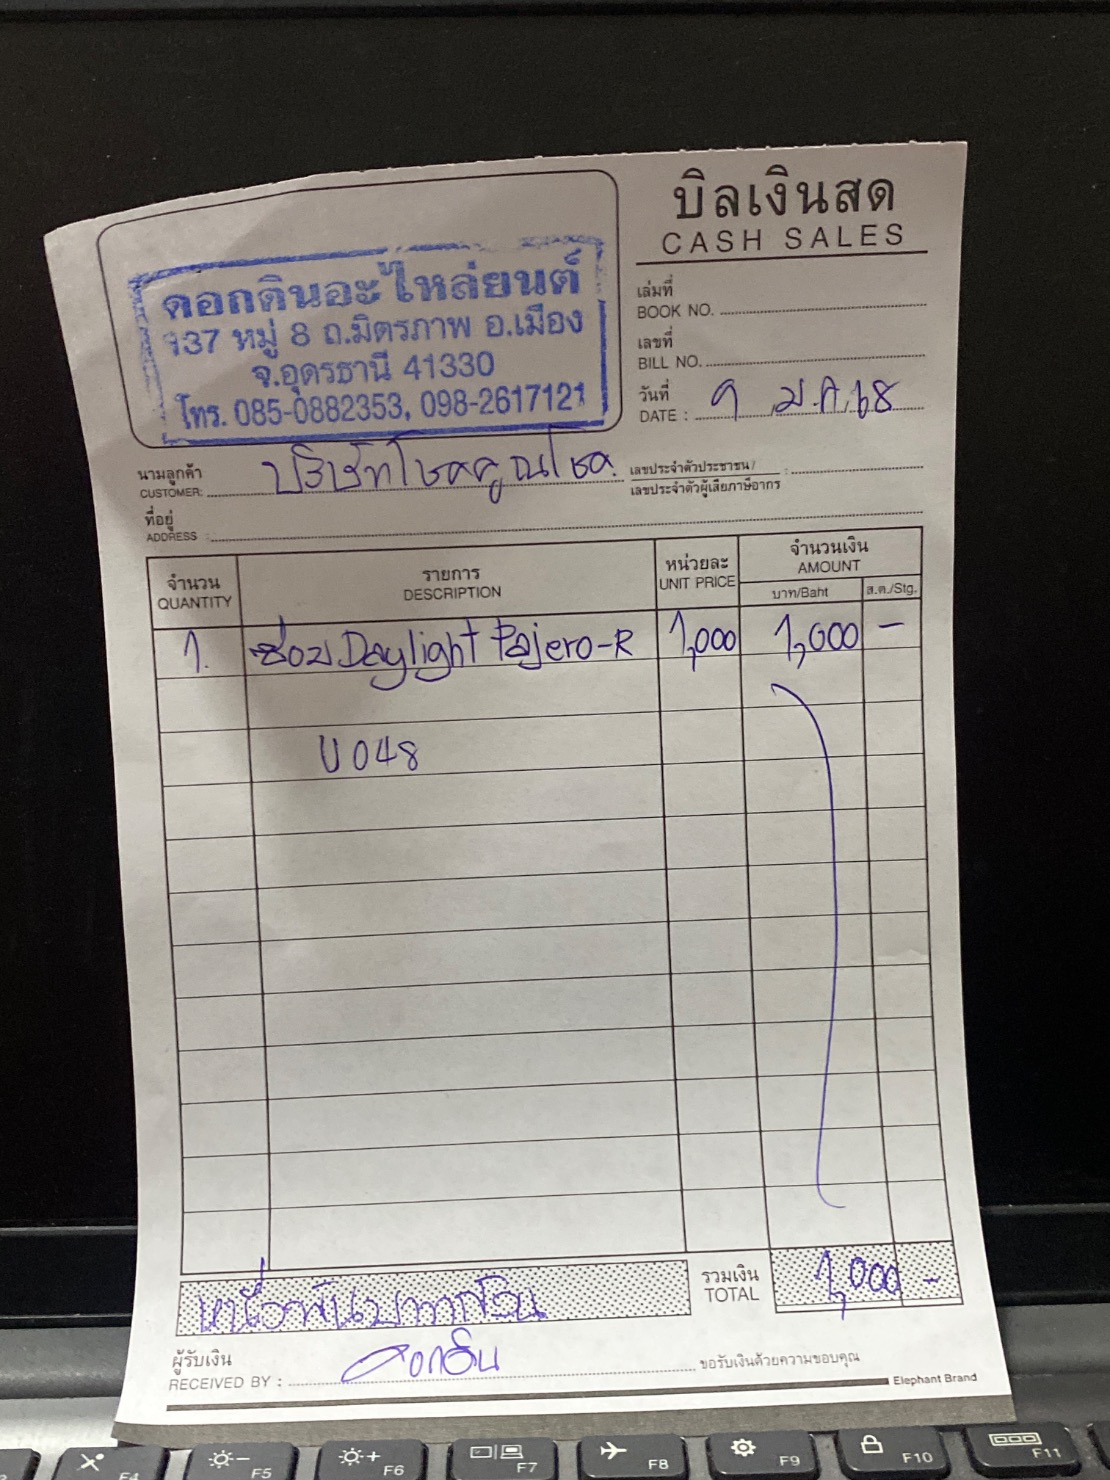 บิลเงินสด
CASH SALES
ดอกดินอะไหล่ยนต์
137 หมู่ 8 ถ.มิตรภาพ อ.เมือง
จ.อุดรธานี 41330
โทร. 085-0882353, 098-2617121
เล่มที่
BOOK NO.
เลขที่
BILL NO.
วันที่
DATE : 9 ม.ค. 68
นามลูกค้า
CUSTOMER: บริษัทโชคคูณโชค
เลขประจำตัวประชาชน /
เลขประจำตัวผู้เสียภาษีอากร :
ที่อยู่
ADDRESS :
จำนวน รายการ หน่วยละ จำนวนเงิน
QUANTITY DESCRIPTION UNIT PRICE AMOUNT
บาท/Baht ส.ต./Stg.
1. ซ่อม Daylight Pajero-R 1,000 1,000 -
U048
หนึ่งพันบาทถ้วน
รวมเงิน
TOTAL 1,000 -
ผู้รับเงิน
RECEIVED BY : ดอกดิน ขอรับเงินด้วยความขอบคุณ
Elephant Brand
F4 F5 F6 F7 F8 F9 F10 F11